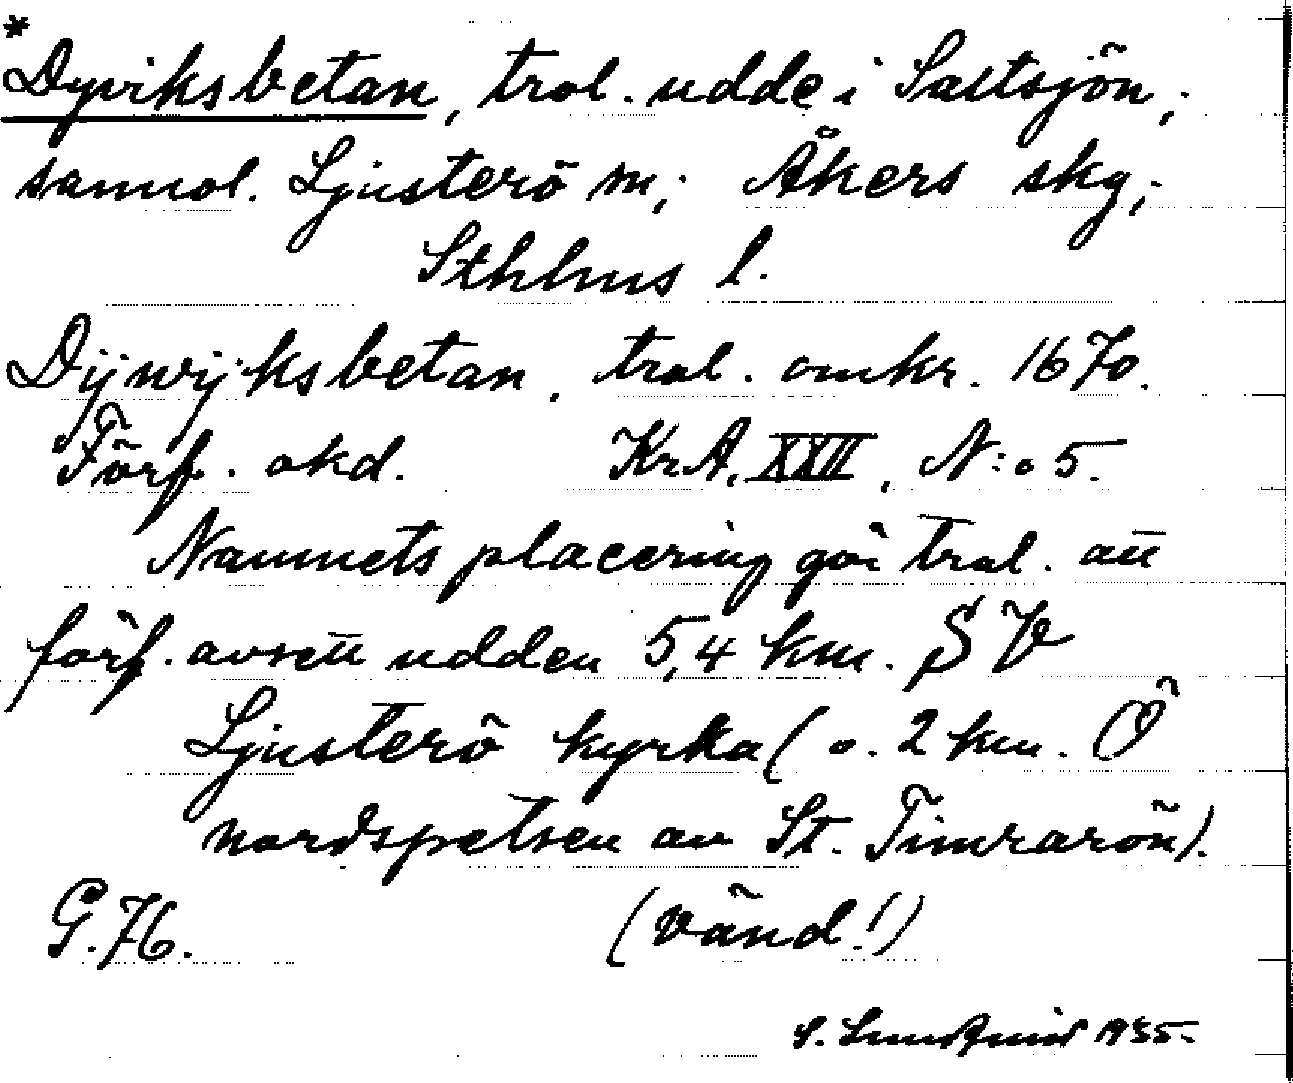 *
Dyviksbetan, trol. udde i Saltsjön,
sannol. Ljusterö sn; Åkers skg,
Sthlms l.
Dijwijksbetan, trol. omkr. 1670.
Förf. okd. KrA. XXII, N:o 5.
Namnets placering gör trol. att
förf. avsett udden 5,4 km. SV
Ljusterö kyrka (o. 2 km. Ö
nordspetsen av St. Timrarön).
(Vänd!)
S. Lundquist 1935.